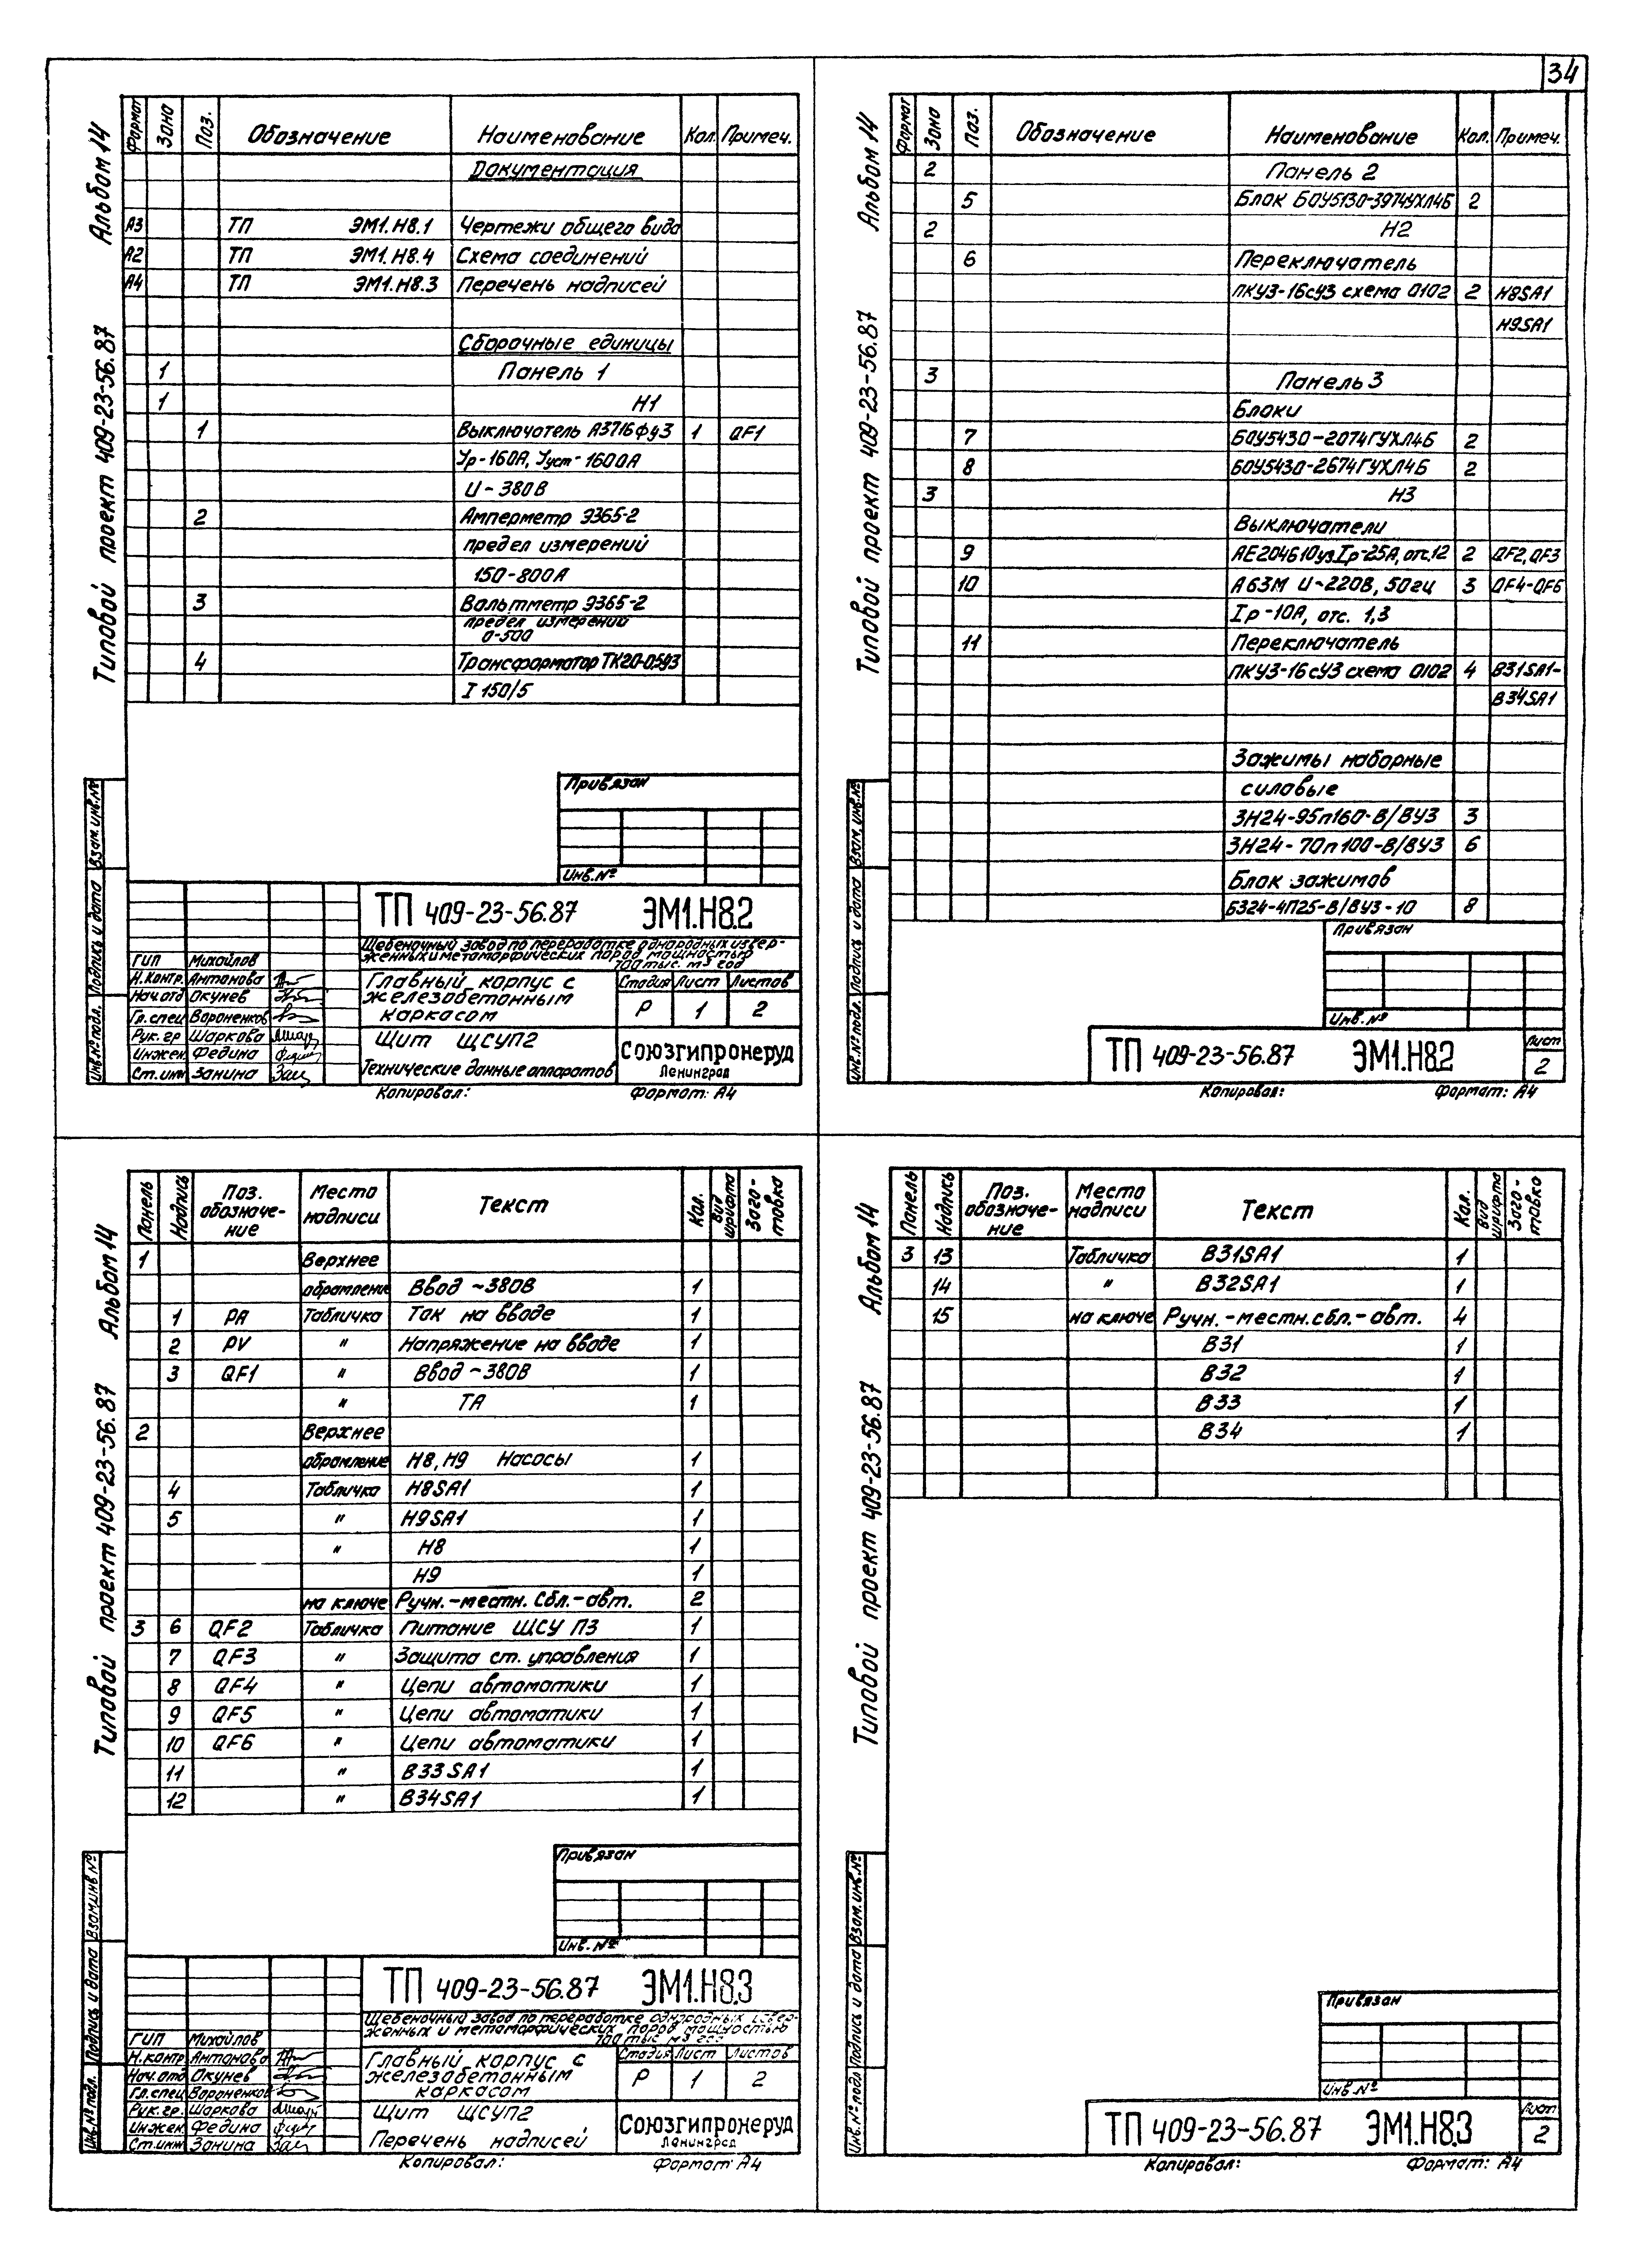 34
Альбом 14
Типовой проект 409-23-56.87
Формат Зона Поз. Обозначение Наименование Кол. Примеч.
Документация
А3 ТП ЭМ1.Н8.1 Чертежи общего вида
А2 ТП ЭМ1.Н8.4 Схема соединений
А4 ТП ЭМ1.Н8.3 Перечень надписей
Сборочные единицы
1 Панель 1
1 Н1
1 Выключатель А3716ФУ3 1 QF1
Iр-160А, Iуст-1600А
U ~ 380В
2 Амперметр Э365-2
предел измерений
150-800А
3 Вольтметр Э365-2
предел измерений
0-500
4 Трансформатор ТК20-0,5У3
I 150/5
Привязан
Инв.№
Взам.инв.№
Подпись и дата
Инв.№ подл.
ТП 409-23-56.87 ЭМ1.Н8.2
Щебеночный завод по переработке однородных извер-
женных и метаморфических пород мощностью
700 тыс. м3 год
ГИП Михайлов
Н.контр. Антонова
Нач.отд Окунев
Гл.спец Вороненков
Рук.гр Шаркова
Инжен. Федина
Ст.инж Занина
Главный корпус с
железобетонным
каркасом
Стадия Лист Листов
Р 1 2
Щит ЩСУП2
Технические данные аппаратов
Союзгипронеруд
Ленинград
Копировал: Формат: А4
Альбом 14
Типовой проект 409-23-56.87
Формат Зона Поз. Обозначение Наименование Кол. Примеч.
2 Панель 2
5 Блок БОУ5130-3974УХЛ4Б 2
2 Н2
6 Переключатель
ПКУ3-16сУ3 схема 0102 2 Н8SA1
Н9SA1
3 Панель 3
Блоки
7 БОУ5430-2074ГУХЛ4Б 2
8 БОУ5430-2674ГУХЛ4Б 2
3 Н3
Выключатели
9 АЕ204610у3Iр-25А, отс.12 2 QF2, QF3
10 А63М U~220В, 50гц 3 QF4-QF6
Iр-10А, отс. 1,3
11 Переключатель
ПКУ3-16сУ3 схема 0102 4 В31SA1-
В34SA1
Зажимы наборные
силовые
ЗН24-95п160-В/ВУ3 3
ЗН24-70п100-В/ВУ3 6
Блок зажимов
БЗ24-4П25-В/ВУ3-10 8
Привязан
Инв.№
Взам.инв.№
Подпись и дата
Инв.№ подл.
ТП 409-23-56.87 ЭМ1.Н8.2
Лист
2
Копировал: Формат: А4
Альбом 14
Типовой проект 409-23-56.87
Панель Надпись Поз. обозначе-ние Место надписи Текст Кол. Вид шрифта Заго-товка
1 Верхнее
обрамление Ввод ~380В 1
1 РА Табличка Ток на вводе 1
2 PV " Напряжение на вводе 1
3 QF1 " Ввод ~380В 1
" ТА 1
2 Верхнее
обрамление Н8, Н9 Насосы 1
4 Табличка Н8SA1 1
5 " Н9SA1 1
" Н8 1
Н9 1
на ключе Ручн.-местн. Сбл.-авт. 2
3 6 QF2 Табличка Питание ЩСУ П3 1
7 QF3 " Защита ст. управления 1
8 QF4 " Цепи автоматики 1
9 QF5 " Цепи автоматики 1
10 QF6 " Цепи автоматики 1
11 " В33SA1 1
12 " В34SA1 1
Привязан
Инв.№
Взам.инв №
Подпись и дата
Инв.№ подл.
ТП 409-23-56.87 ЭМ1.Н8.3
Щебеночный завод по переработке однородных извер-
женных и метаморфических пород мощностью
700 тыс м3 год
ГИП Михайлов
Н.контр Антонова
Нач.отд Окунев
Гл.спец Вороненков
Рук.гр. Шаркова
Инжен. Федина
Ст.инж Занина
Главный корпус с
железобетонным
каркасом
Стадия Лист Листов
Р 1 2
Щит ЩСУП2
Перечень надписей
Союзгипронеруд
Ленинград
Копировал: Формат: А4
Альбом 14
Типовой проект 409-23-56.87
Панель Надпись Поз. обозначе-ние Место надписи Текст Кол. Вид шрифта Заго-товка
3 13 Табличка В31SA1 1
14 " В32SA1 1
15 на ключе Ручн.-местн.сбл.-авт. 4
В31 1
В32 1
В33 1
В34 1
Привязан
Инв.№
Взам.инв.№
Подпись и дата
Инв.№ подл
ТП 409-23-56.87 ЭМ1.Н8.3
Лист
2
Копировал: Формат: А4